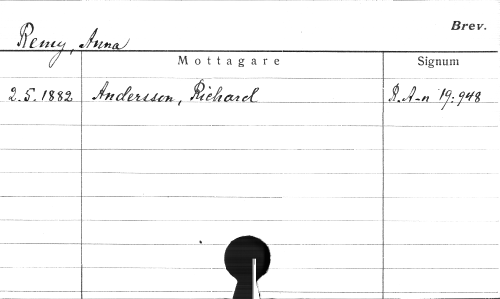 Brev.
Remy, Anna
Mottagare Signum
2.5.1882 Andersson, Richard R.A-n 19:948